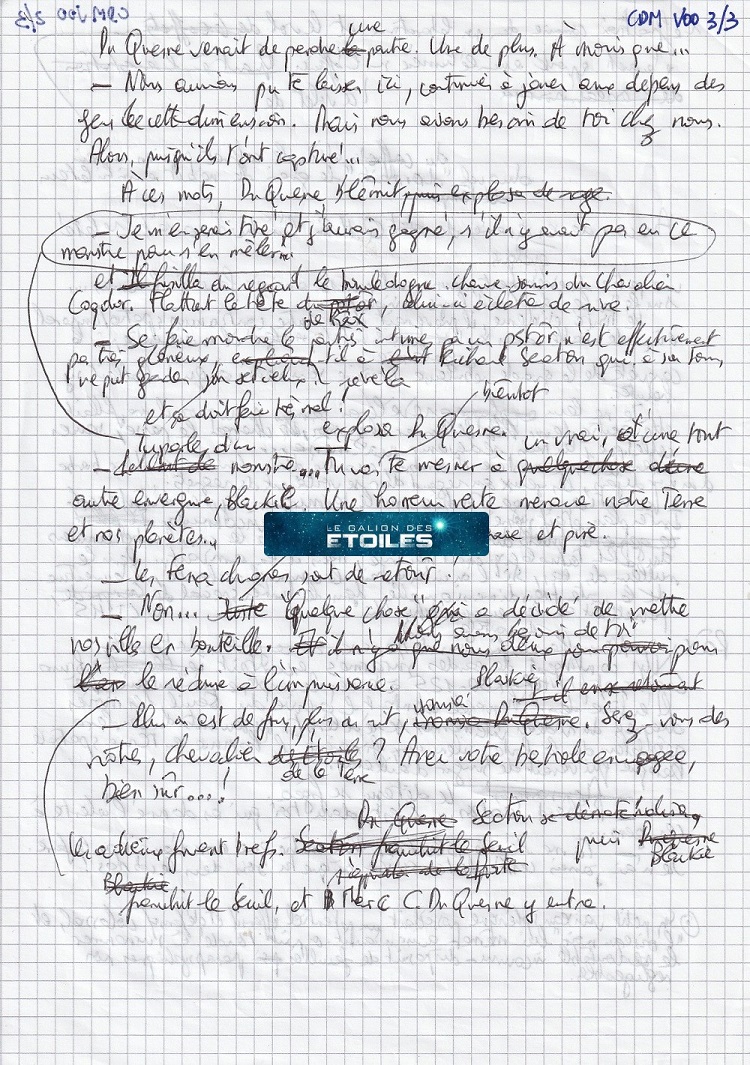 CDM V00 3/3
Du Quesne venait de perdre une partie. Une de plus. À moins que...
— Nous aurions pu te laisser ici, continuer à jouer aux dépens des
gens de cette dimension. Mais nous avons besoin de toi chez nous.
Alors, puisqu'ils t'ont capturé...
À ces mots, Du Quesne blêmit puis explosa de rage.
— Je m'en serais tiré et j'aurais gagné, s'il n'y avait pas eu ce
monstre pour s'en mêler...
et fusilla du regard le bouledogue chauve-souris du Chevalier
Cogdor. Flattant la tête de Rax, celui-ci éclata de rire.
— Se faire mordre les parties intimes par un pstôr n'est effectivement
pas très glorieux, Richard Seaton qui, à son tour,
ne put garder son sérieux.
et ça doit faire très mal !
explosa Du Quesne. bientôt
— Tu parles d'un monstre... Tu vas te mesurer à un vrai, et d'une tout
autre envergure, Blackie. Une horreur verte menace notre Terre
et nos planètes... et pire.
— Les Fenachrones sont de retour !
— Non... "Quelque chose" a décidé de mettre
nos villes en bouteille. Nous avons besoin de toi pour
le réduire à l'impuissance. Blackie
— Plus on est de fous, plus on rit, Serez-vous des
nôtres, chevalier de la Terre ? Avec votre bestiole enragée,
bien sûr...!
Les adieux furent brefs. Seaton puis Blackie
franchit le seuil, et Marc C. Du Quesne y entra.
LE GALION DES
ETOILES